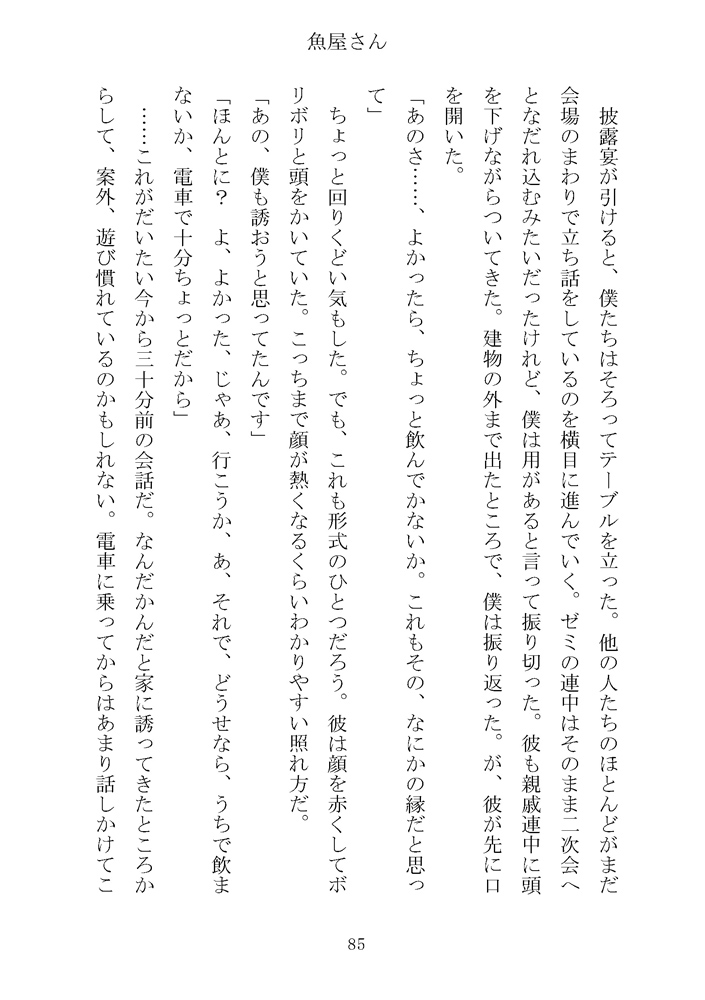 魚屋さん
披露宴が引けると、僕たちはそろってテーブルを立った。他の人たちのほとんどがまだ
会場のまわりで立ち話をしているのを横目に進んでいく。ゼミの連中はそのまま二次会へ
となだれ込むみたいだったけれど、僕は用があると言って振り切った。彼も親戚連中に頭
を下げながらついてきた。建物の外まで出たところで、僕は振り返った。が、彼が先に口
を開いた。
「あのさ……、よかったら、ちょっと飲んでかないか。これもその、なにかの縁だと思っ
て」
ちょっと回りくどい気もした。でも、これも形式のひとつだろう。彼は顔を赤くしてボ
リボリと頭をかいていた。こっちまで顔が熱くなるくらいわかりやすい照れ方だ。
「あの、僕も誘おうと思ってたんです」
「ほんとに？　よ、よかった、じゃあ、行こうか、あ、それで、どうせなら、うちで飲ま
ないか、電車で十分ちょっとだから」
……これがだいたい今から三十分前の会話だ。なんだかんだと家に誘ってきたところか
らして、案外、遊び慣れているのかもしれない。電車に乗ってからはあまり話しかけてこ
85